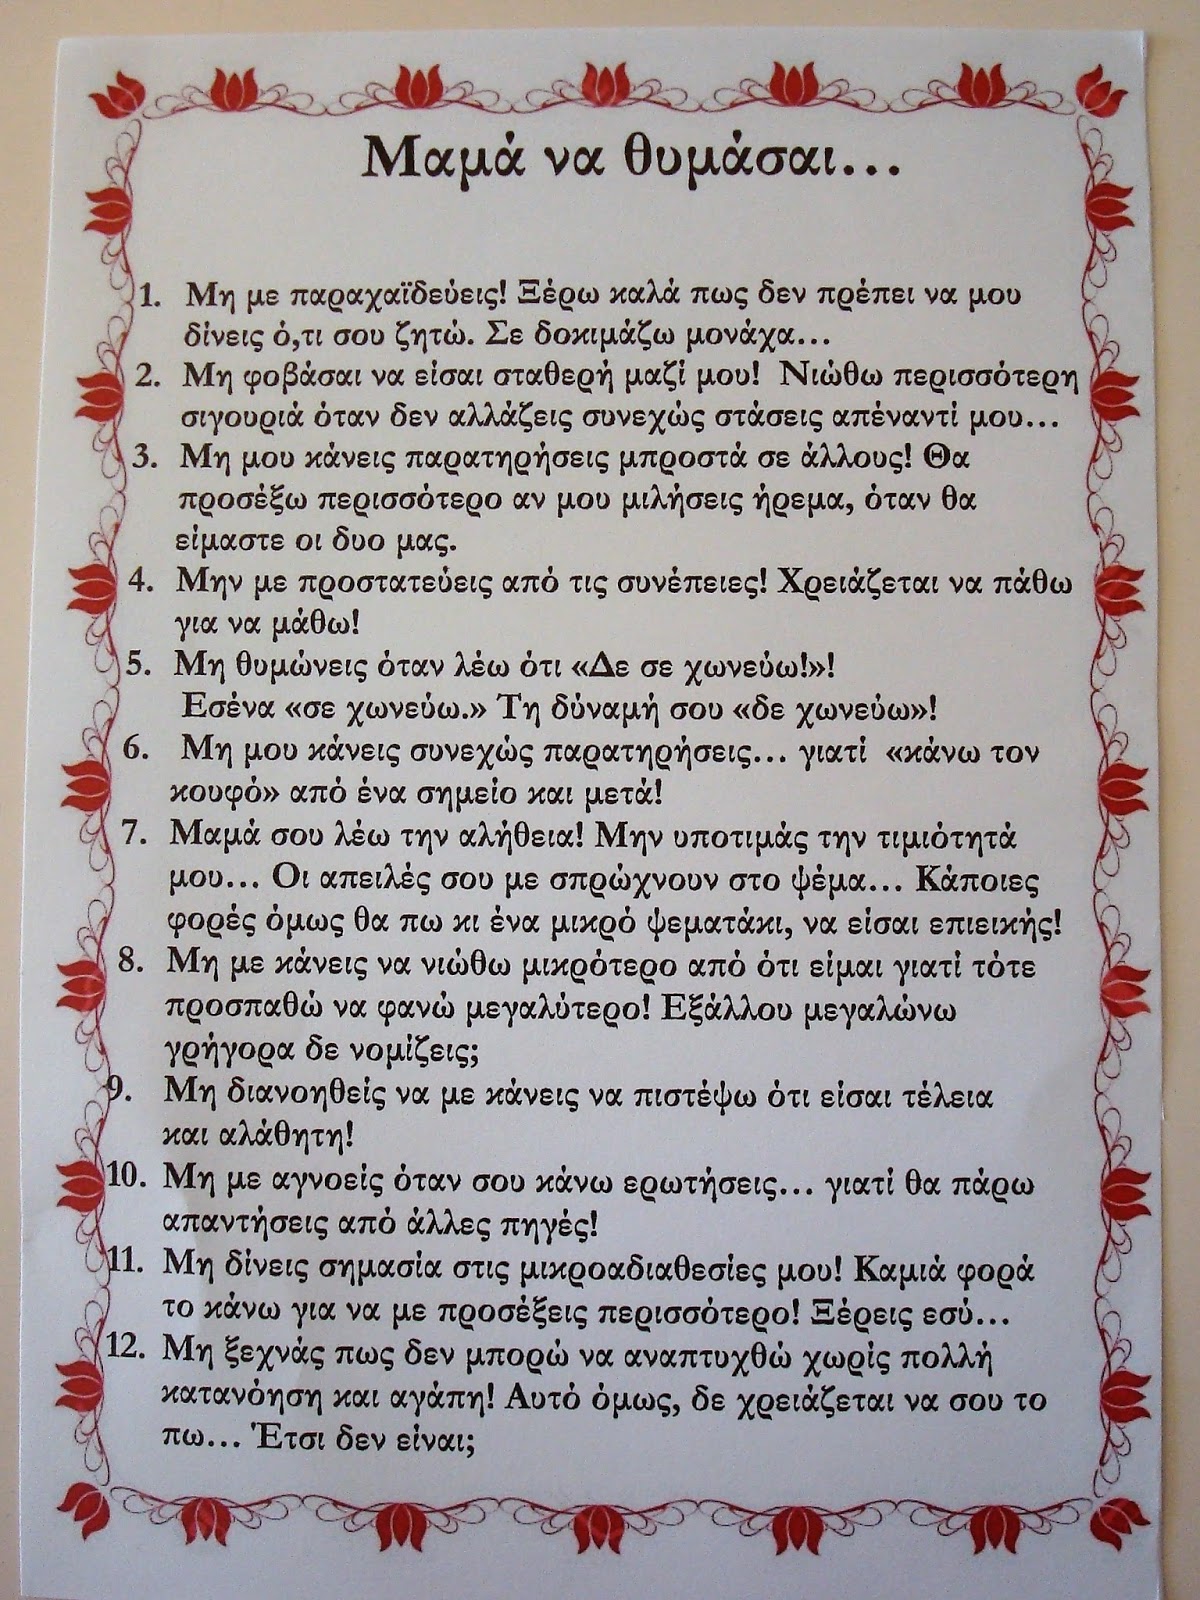 Μαμά να θυμάσαι…
1. Μη με παραχαϊδεύεις! Ξέρω καλά πως δεν πρέπει να μου
δίνεις ό,τι σου ζητώ. Σε δοκιμάζω μονάχα…
2. Μη φοβάσαι να είσαι σταθερή μαζί μου! Νιώθω περισσότερη
σιγουριά όταν δεν αλλάζεις συνεχώς στάσεις απέναντί μου…
3. Μη μου κάνεις παρατηρήσεις μπροστά σε άλλους! Θα
προσέξω περισσότερο αν μου μιλήσεις ήρεμα, όταν θα
είμαστε οι δυο μας.
4. Μην με προστατεύεις από τις συνέπειες! Χρειάζεται να πάθω
για να μάθω!
5. Μη θυμώνεις όταν λέω ότι «Δε σε χωνεύω!»!
Εσένα «σε χωνεύω.» Τη δύναμή σου «δε χωνεύω»!
6. Μη μου κάνεις συνεχώς παρατηρήσεις… γιατί «κάνω τον
κουφό» από ένα σημείο και μετά!
7. Μαμά σου λέω την αλήθεια! Μην υποτιμάς την τιμιότητά
μου… Οι απειλές σου με σπρώχνουν στο ψέμα… Κάποιες
φορές όμως θα πω κι ένα μικρό ψεματάκι, να είσαι επιεικής!
8. Μη με κάνεις να νιώθω μικρότερο από ότι είμαι γιατί τότε
προσπαθώ να φανώ μεγαλύτερο! Εξάλλου μεγαλώνω
γρήγορα δε νομίζεις;
9. Μη διανοηθείς να με κάνεις να πιστέψω ότι είσαι τέλεια
και αλάθητη!
10. Μη με αγνοείς όταν σου κάνω ερωτήσεις… γιατί θα πάρω
απαντήσεις από άλλες πηγές!
11. Μη δίνεις σημασία στις μικροαδιαθεσίες μου! Καμιά φορά
το κάνω για να με προσέξεις περισσότερο! Ξέρεις εσύ…
12. Μη ξεχνάς πως δεν μπορώ να αναπτυχθώ χωρίς πολλή
κατανόηση και αγάπη! Αυτό όμως, δε χρειάζεται να σου το
πω… Έτσι δεν είναι;